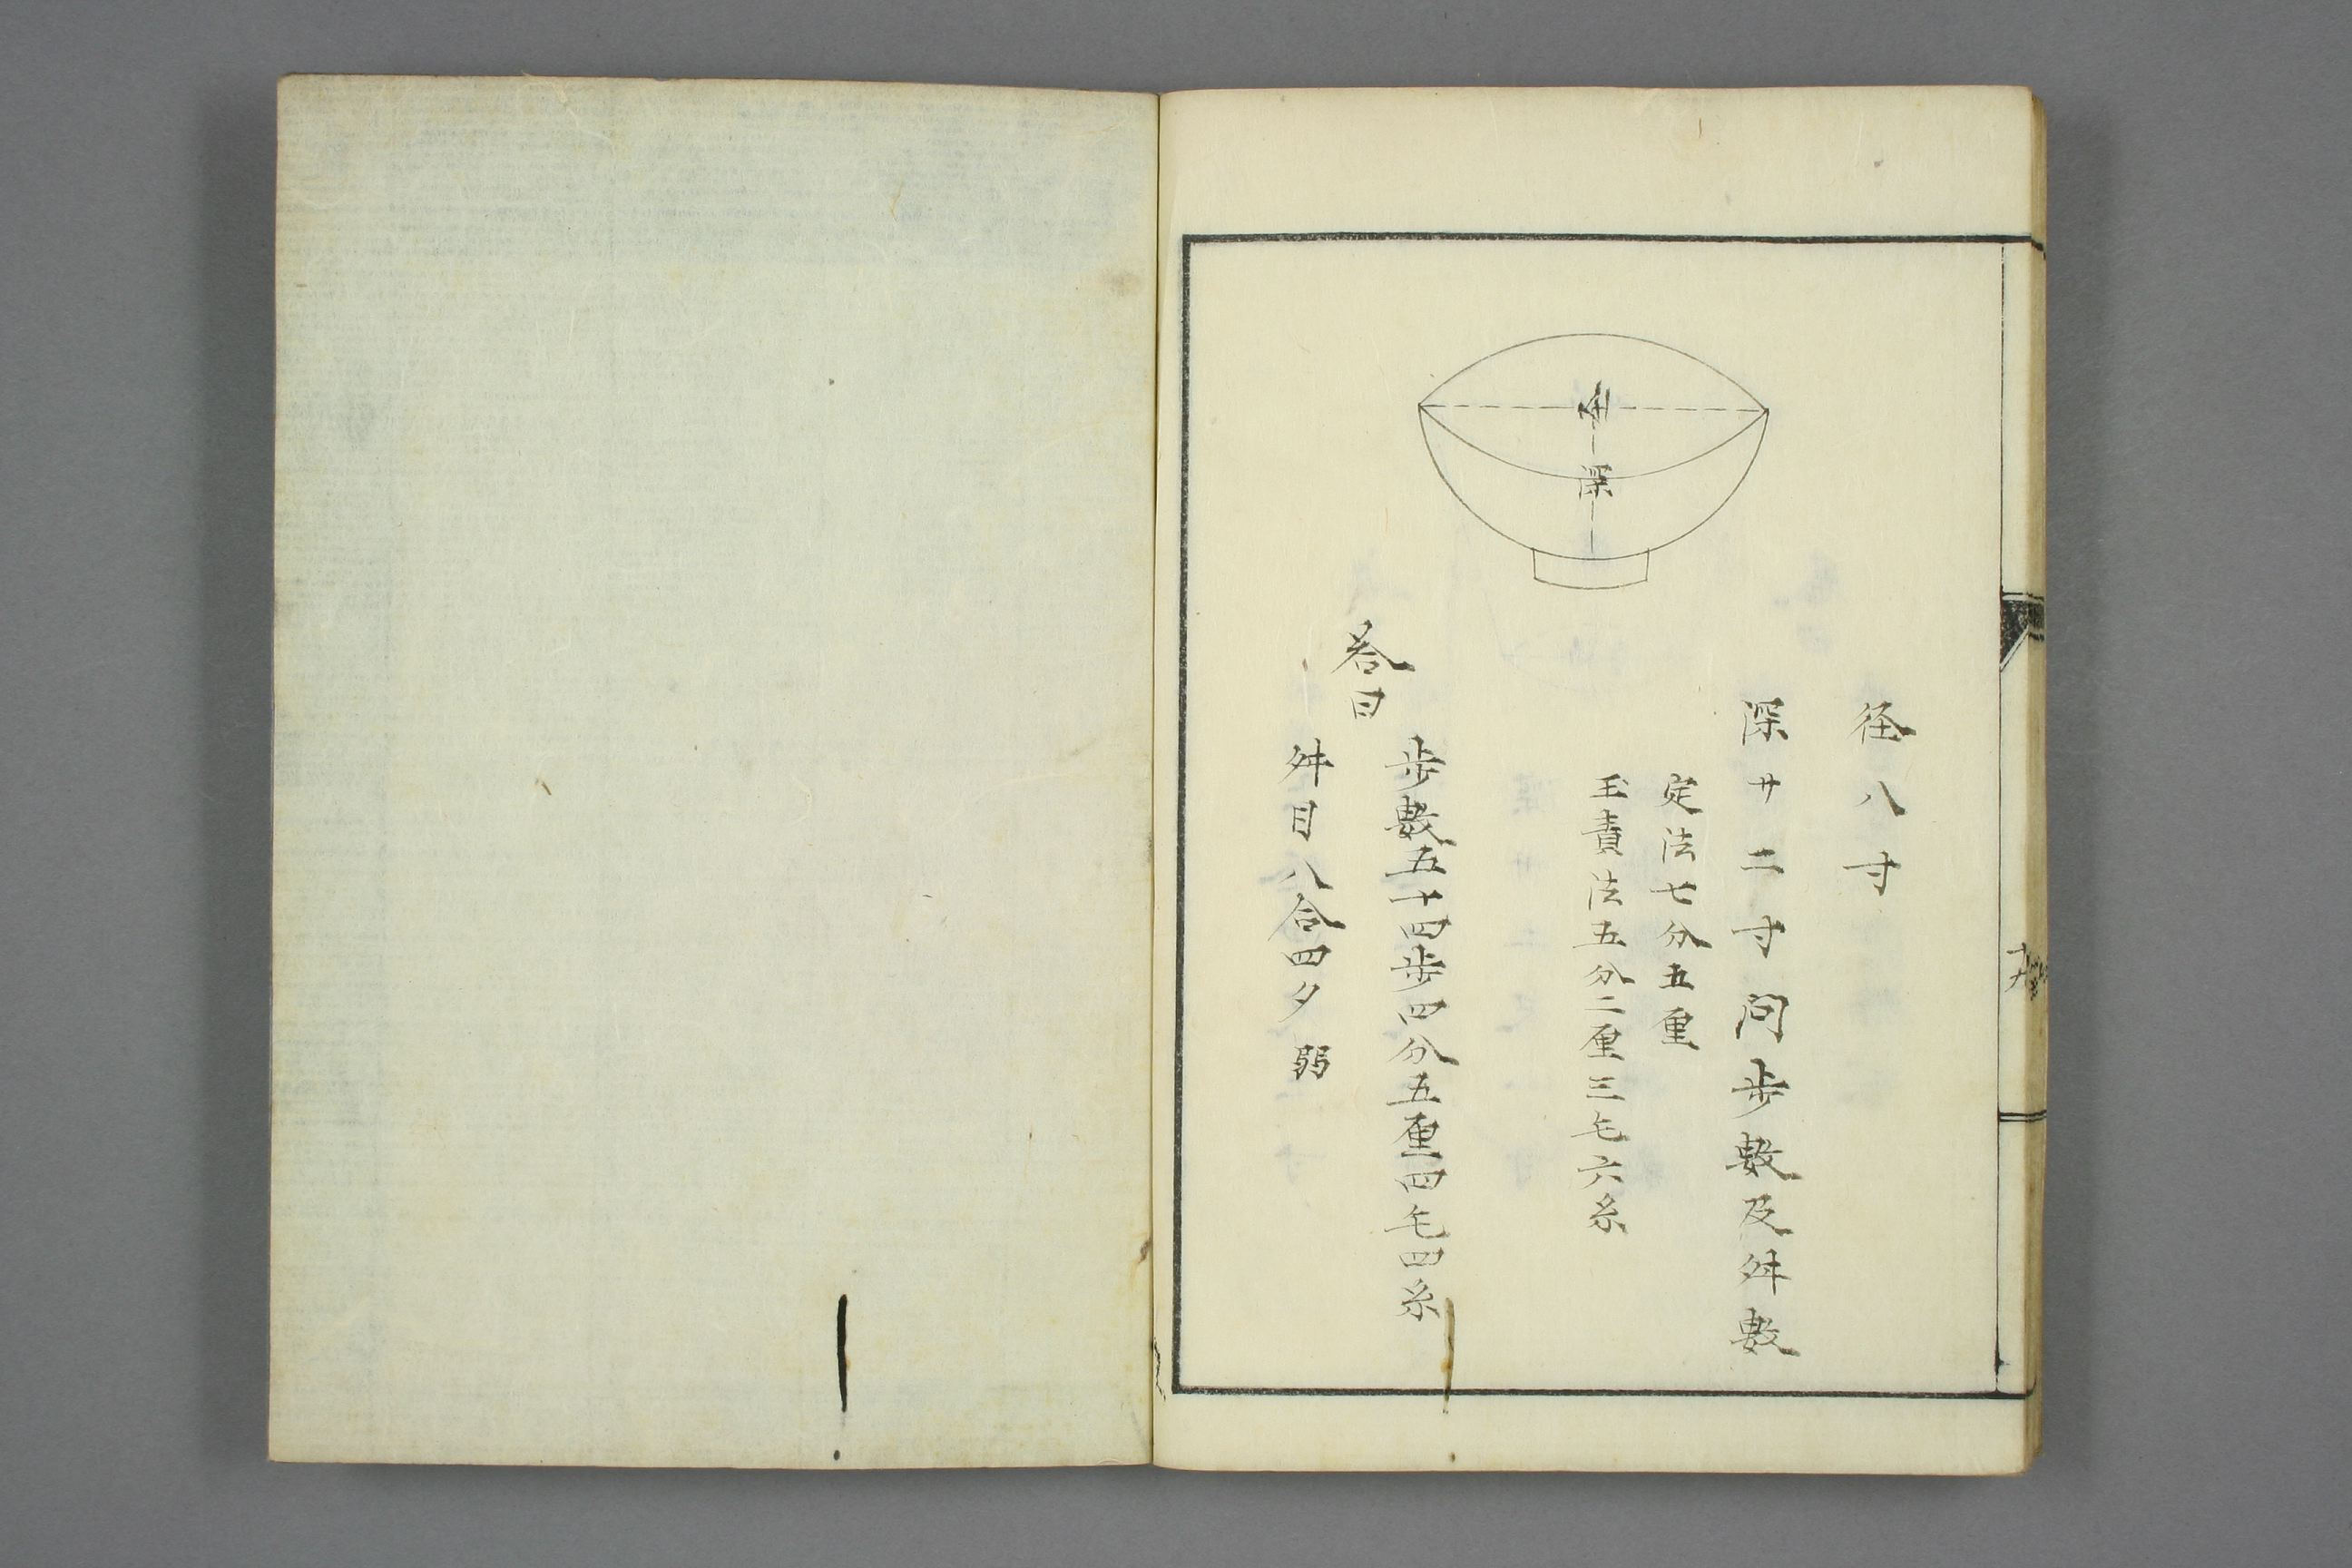 径八寸
深廾二寸問歩數及舛數
定法七分五厘
玉責法五分二厘三毛六糸
深
答曰
歩數五十四歩四分五厘四毛四糸
舛目八合四夕弱